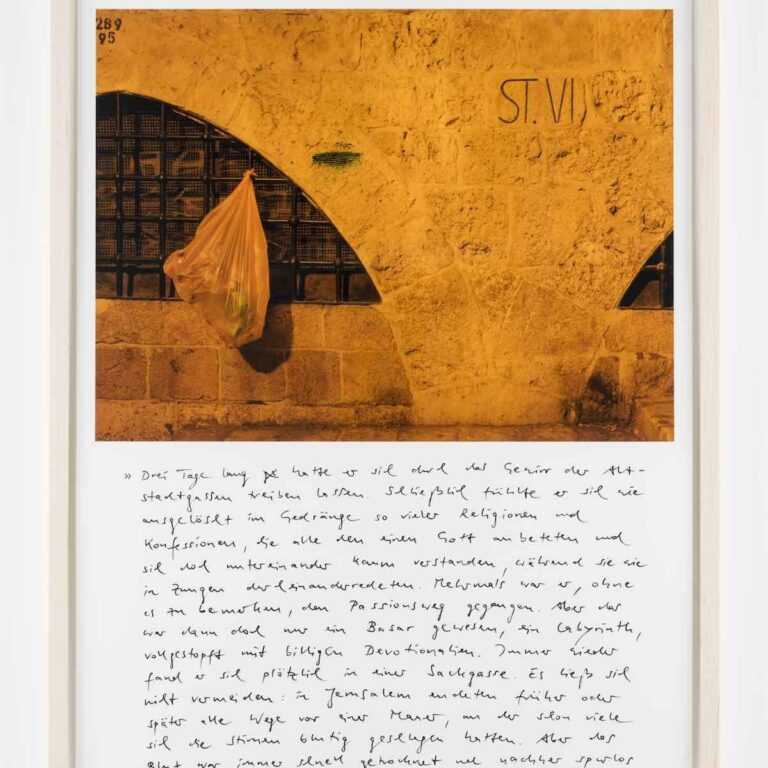 289
95
ST. VI
» Drei Tage lang hatte er sich durch das Gewirr der Alt-
stadtgassen treiben lassen. Schließlich fühlte er sich wie
ausgelöscht im Gedränge so vieler Religionen und
Konfessionen, die alle den einen Gott anbeteten und
sich doch untereinander kaum verstanden, während sie wie
in Zungen durcheinanderredeten. Mehrmals war er, ohne
es zu bemerken, den Passionsweg gegangen. Aber das
war dann doch nur ein Basar gewesen, ein Labyrinth,
vollgestopft mit billigen Devotionalien. Immer wieder
fand er sich plötzlich in einer Sackgasse. Es ließ sich
nicht vermeiden: in Jerusalem endeten früher oder
später alle Wege vor einer Mauer, an der schon viele
sich die Stirnen blutig geschlagen hatten. Aber das
Blut war immer schnell getrocknet und nachher spurlos